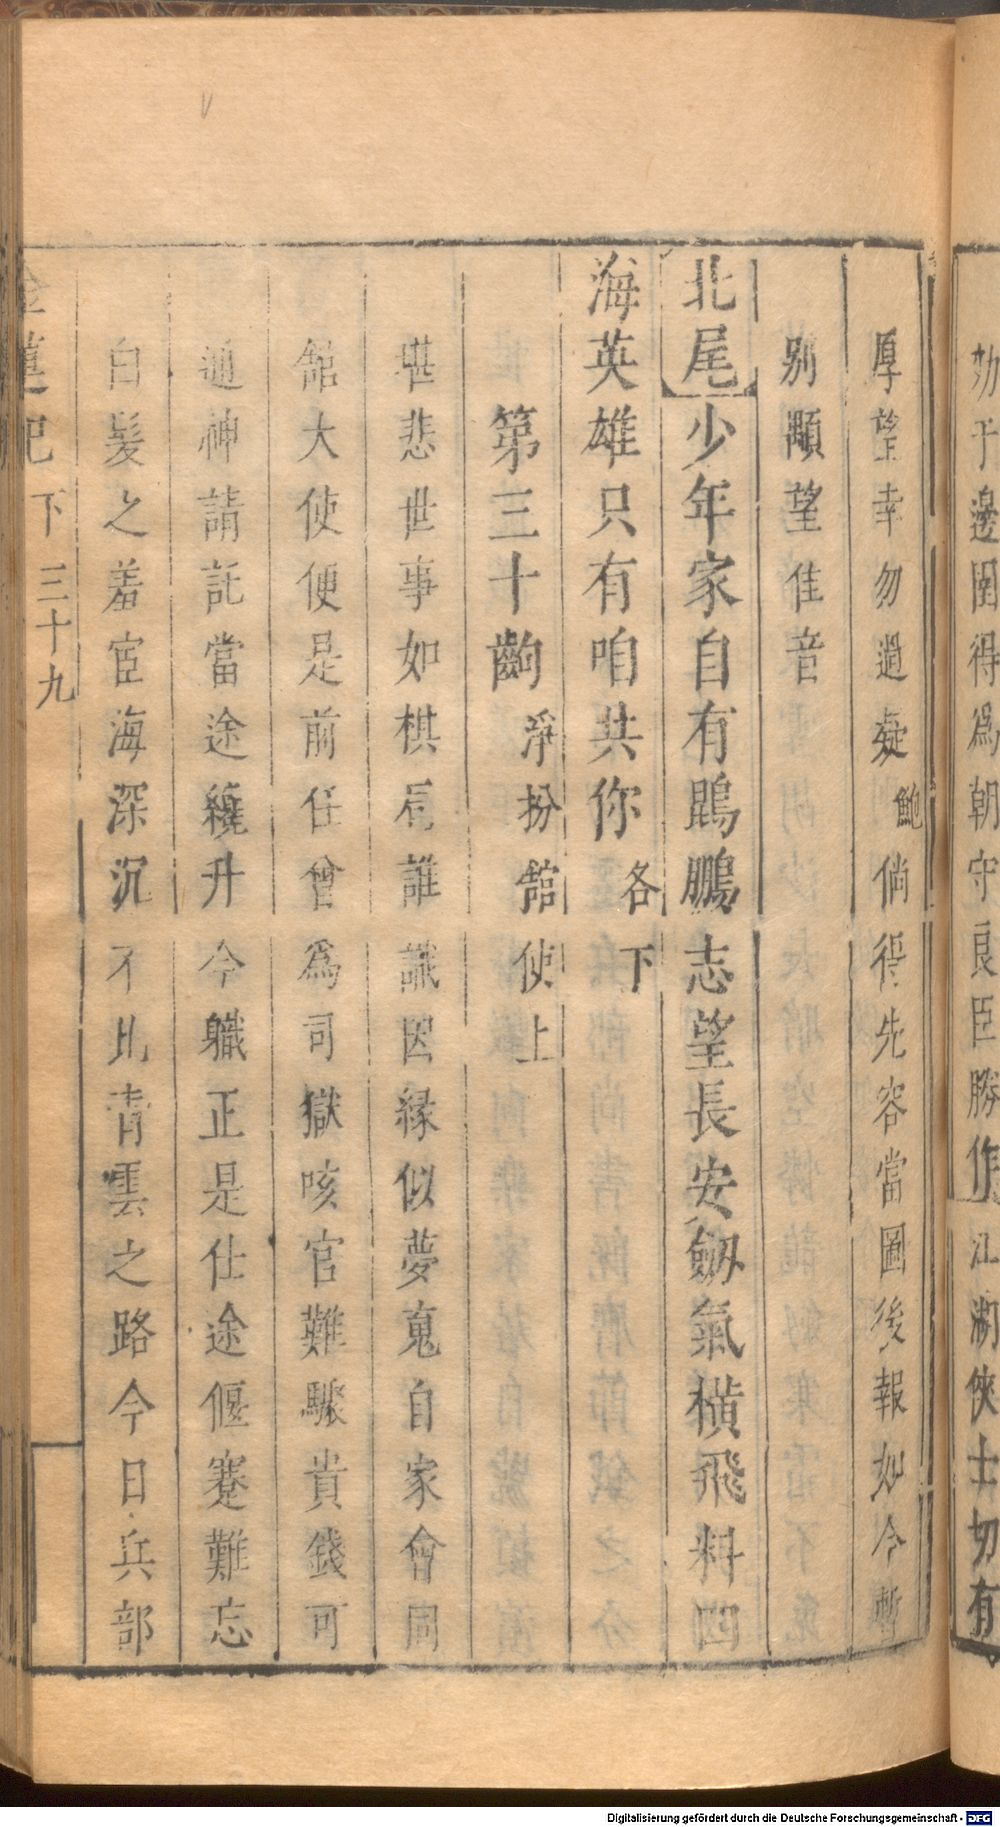 劾于邊圉得爲朝守良臣勝作江湖俠士切有
厚望幸勿過疑鮑倘得先容當圖後報如今暫
别顒望佳音
北尾少年家自有鵾鵬志望長安劔氣橫飛料四
海英雄只有咱共你各下
第三十齣淨扮舘使上
堪悲世事如棋局誰識因縁似夢䰟自家會同
舘大使便是前任曾爲司獄咳官難驟貴錢可
通神請託當途纔升今職正是仕途偃蹇難忘
白髮之羞宦海深沉不比青雲之路今日兵部
金蓮記 下 三十九
Digitalisierung gefördert durch die Deutsche Forschungsgemeinschaft - DFG